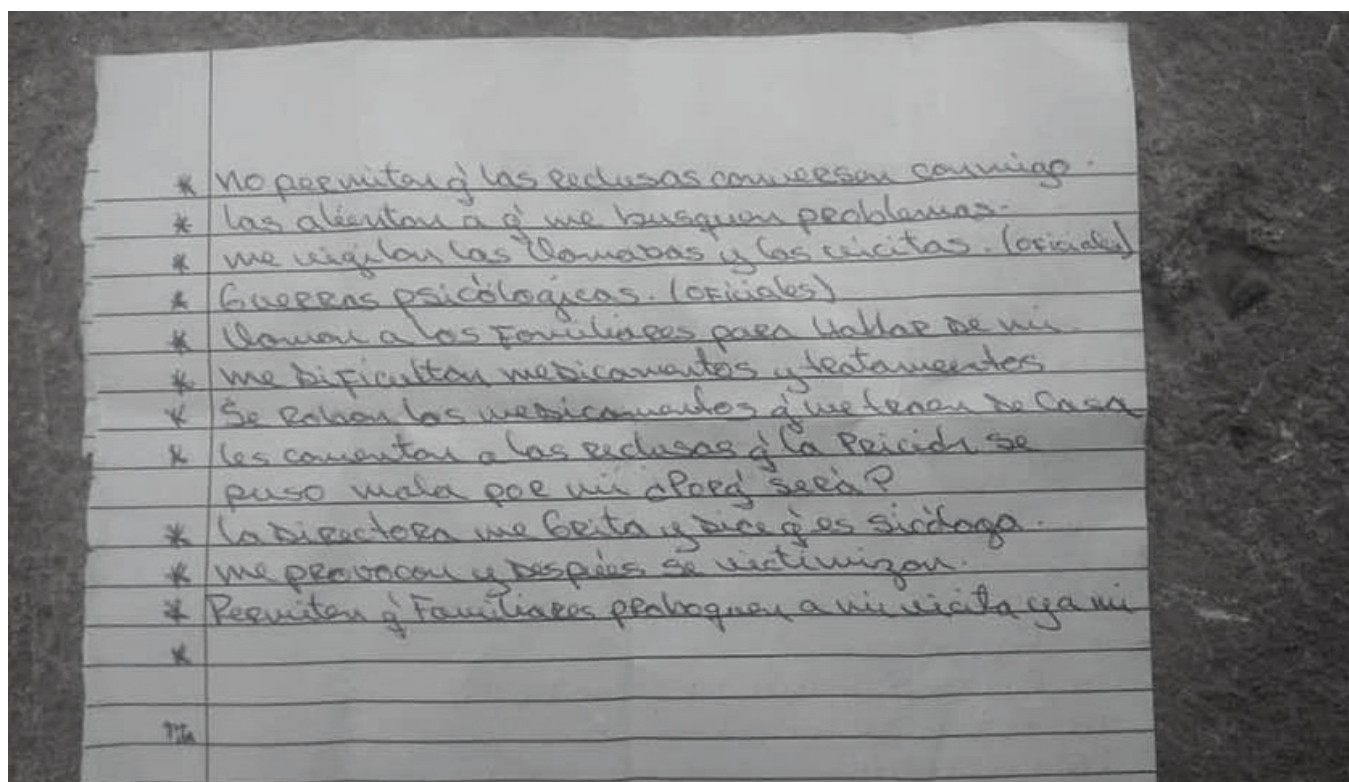 * No permiten q' las reclusas conversen conmigo.
* las alientan a q' me busquen problemas.
* me vigilan las llamabas y las vicitas. (oficiales)
* Guerras psicólogicas. (oficiales)
* llaman a los Familiares para hablar de mi.
* me dificultan medicamentos y tratamientos
* Se Roban los medicamentos q' me traen de Casa
* les comentan a las reclusas q' la Prición se
puso mala por mi ¿Porq' será?
* la Directora me Grita y dice q' es sicóloga.
* me provocan y después se victimizan.
* Permiten q' Familiares proboquen a mi vicita y a mi
*